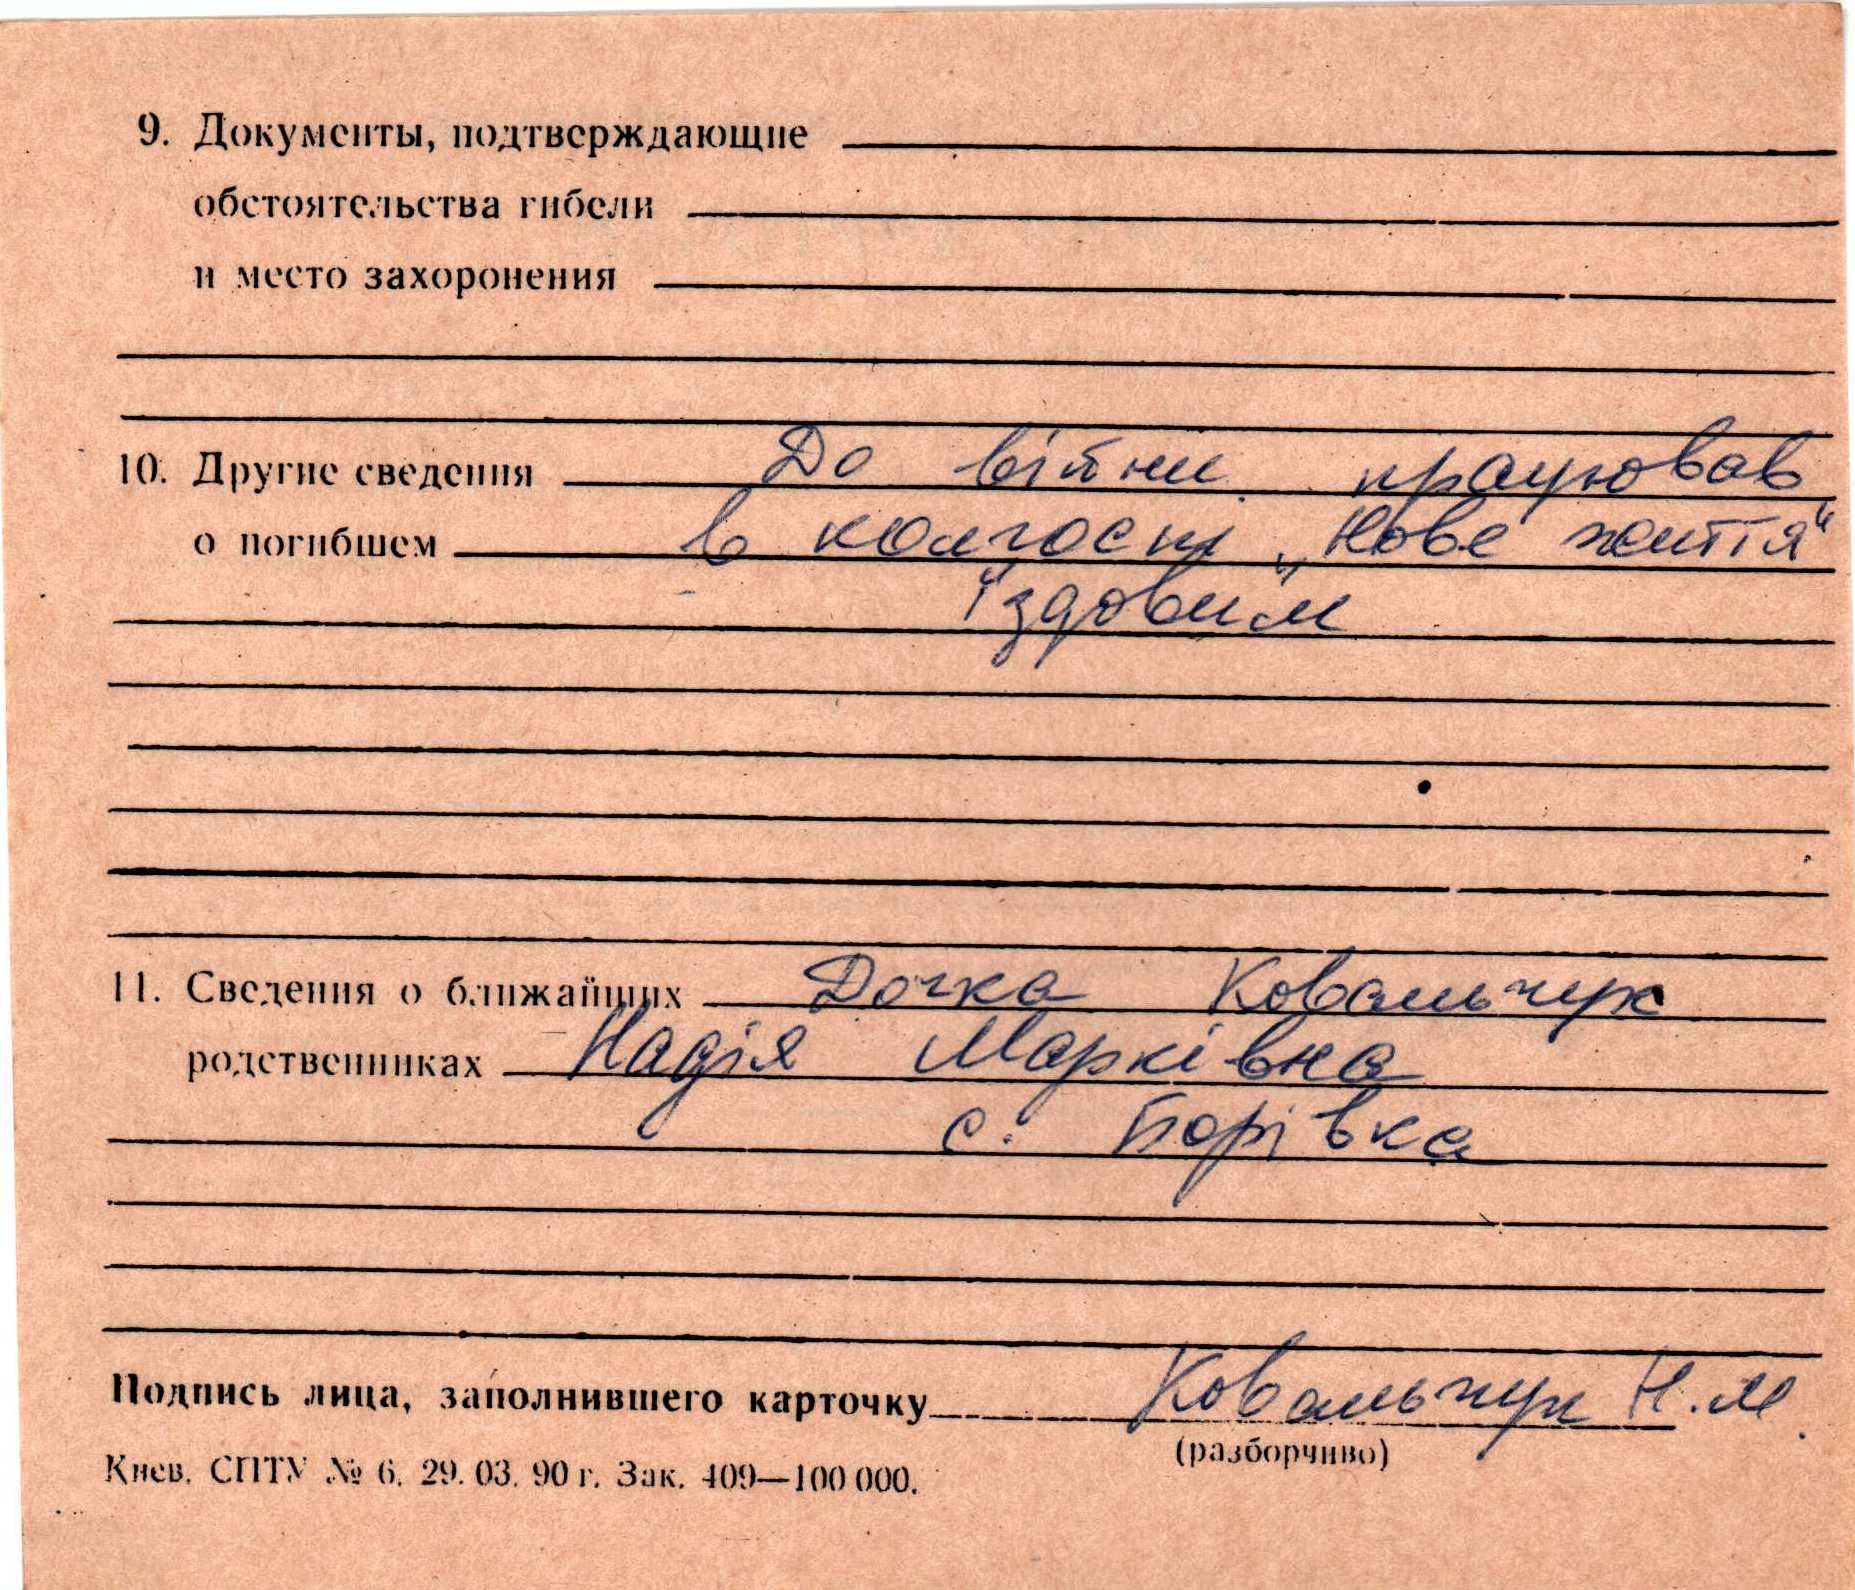 9. Документы, подтверждающие
обстоятельства гибели
и место захоронения
10. Другие сведения До війни працював
о погибшем в колгоспі „Нове життя“
їздовим
11. Сведения о ближайших Дочка Ковальчук
родственниках Надія Марківна
с. Борівка
Подпись лица, заполнившего карточку Ковальчук Н.М.
(разборчиво)
Киев. СПТУ № 6. 29. 03. 90 г. Зак. 409—100 000.